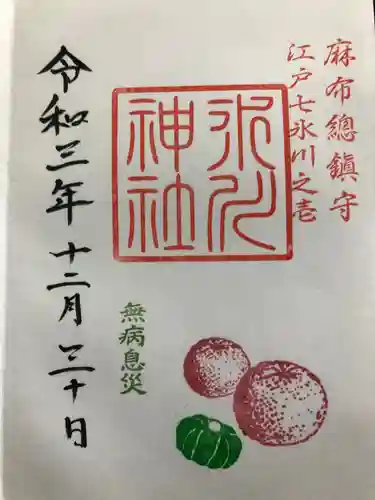 麻布總鎮守
江戸七氷川之壱
氷川
神社
無病息災
令和三年十二月三十日